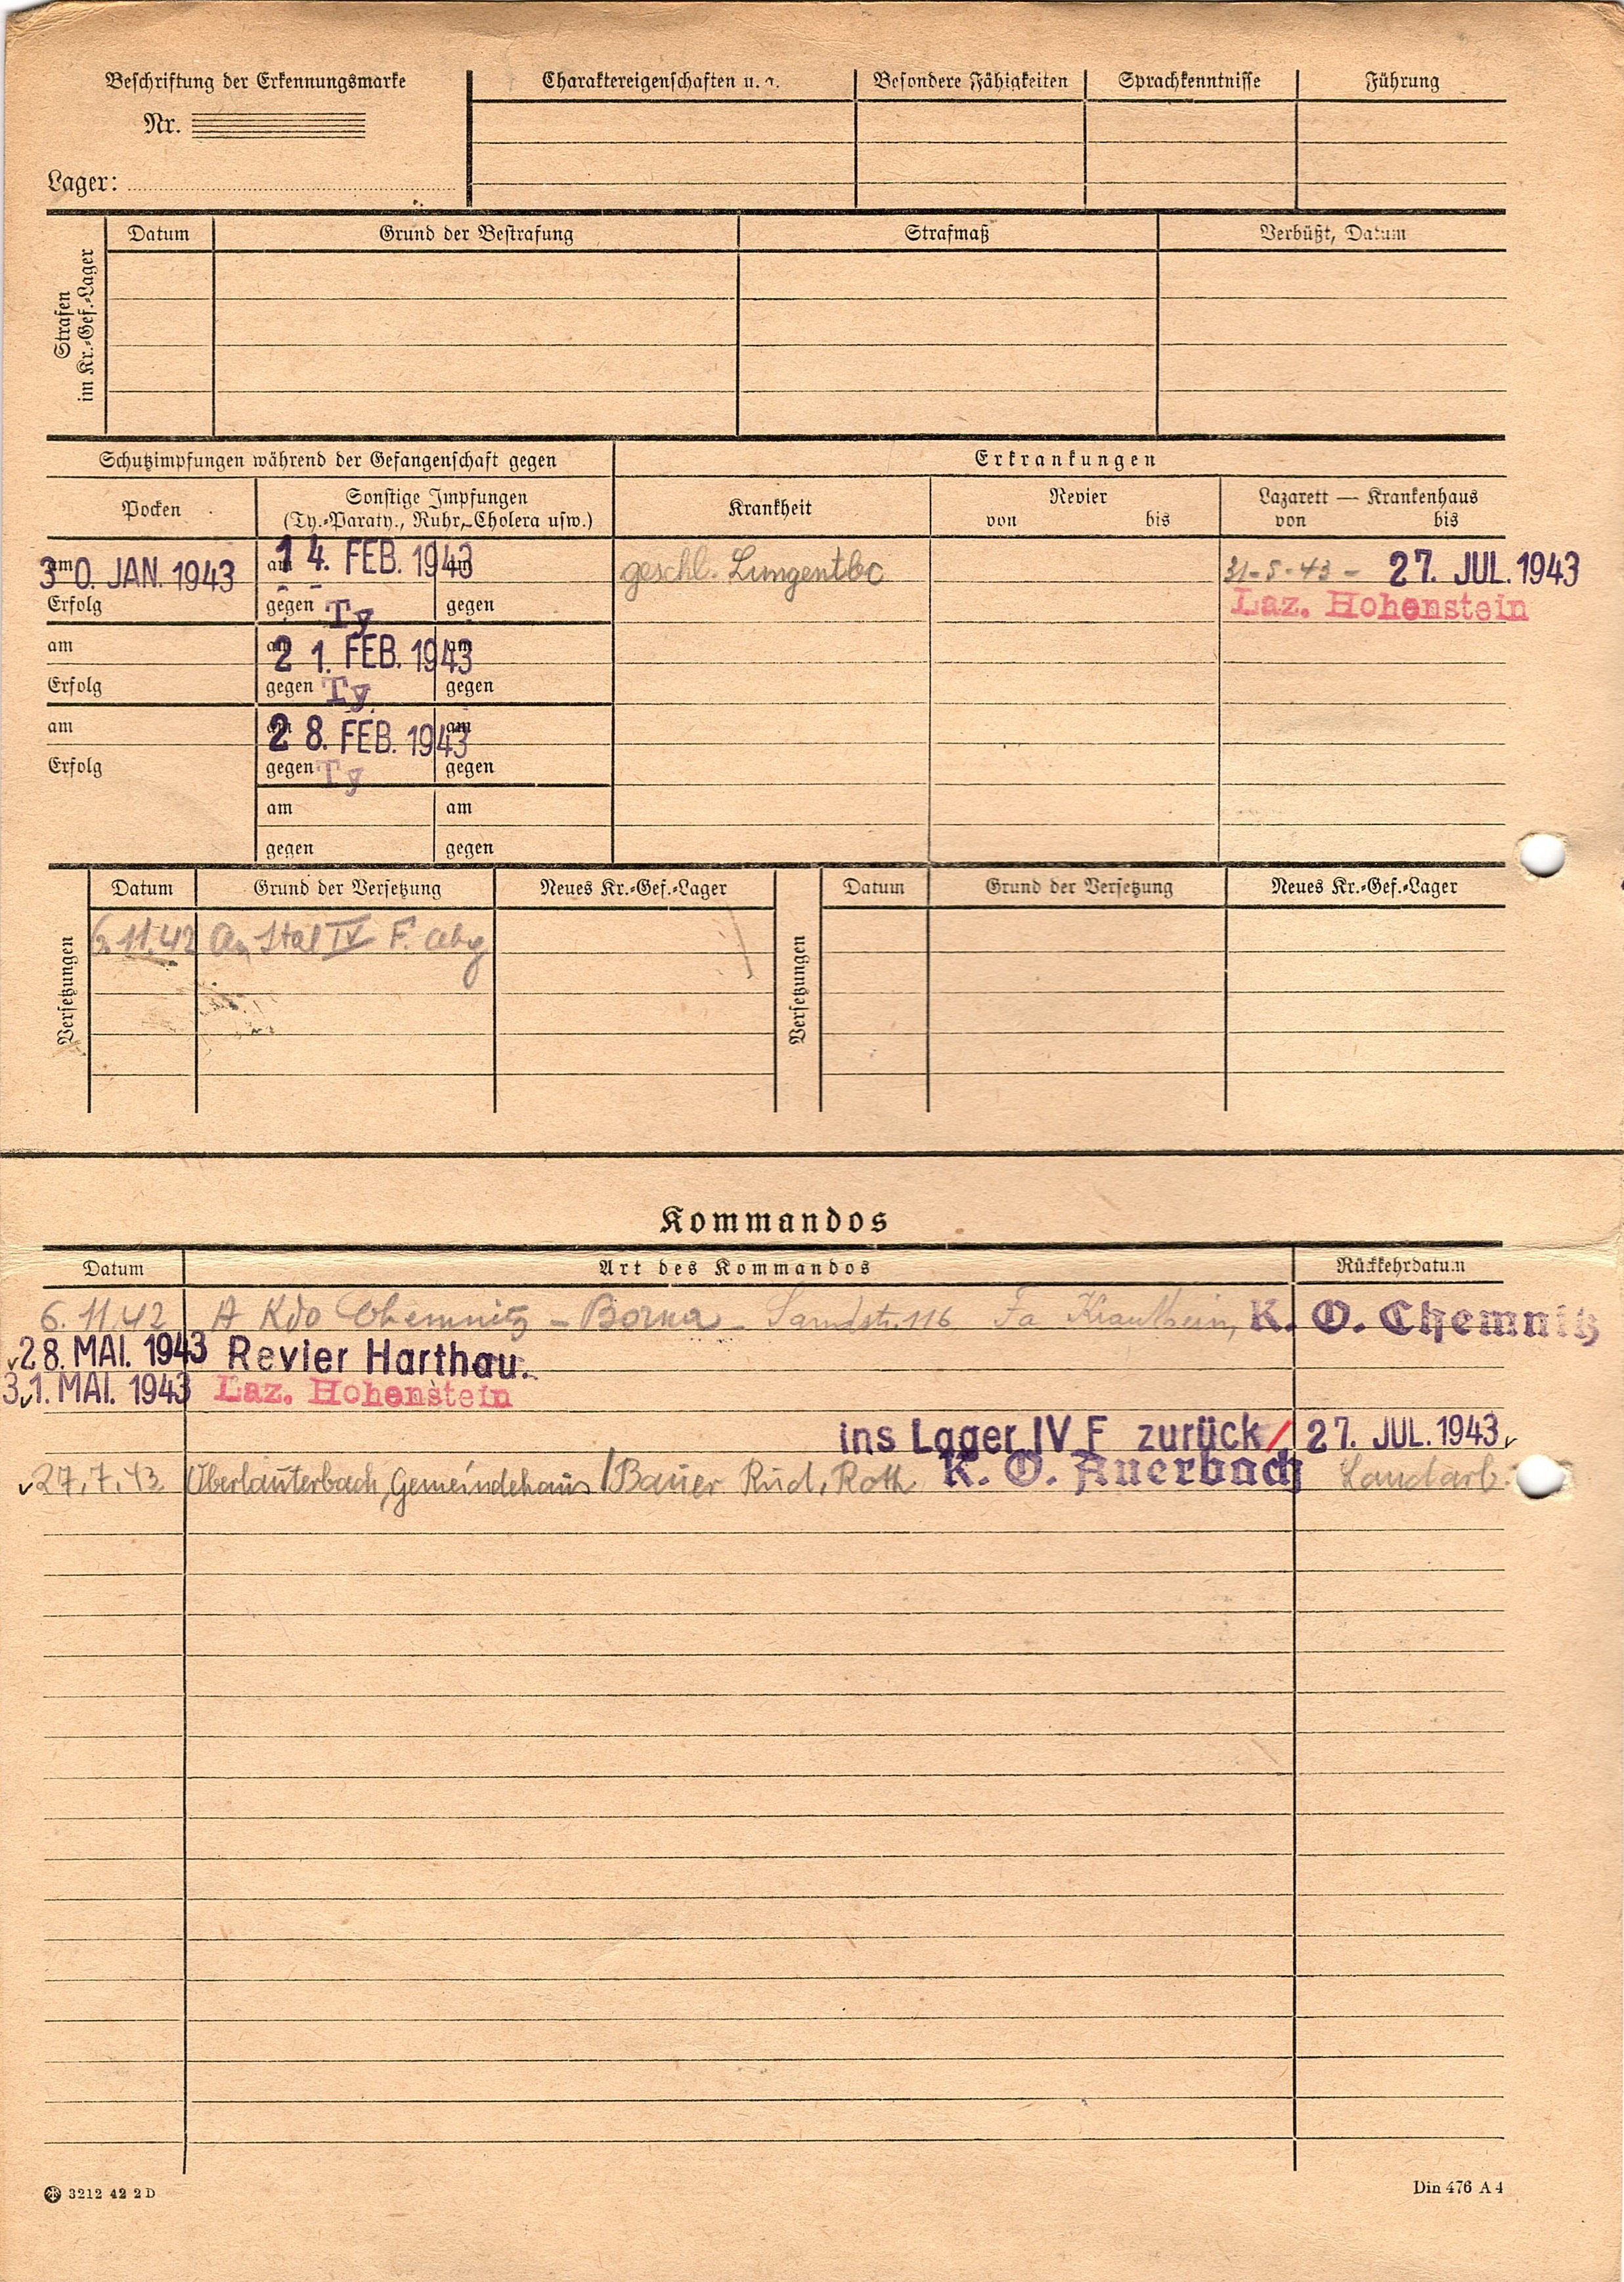 Beschriftung der Erkennungsmarke
Nr.
Lager:
Charaktereigenschaften u. a.
Besondere Fähigkeiten
Sprachkenntnisse
Führung
Strafen
im Kr.-Gef.-Lager
Datum
Grund der Bestrafung
Strafmaß
Verbüßt, Datum
Schutzimpfungen während der Gefangenschaft gegen
Erkrankungen
Pocken
Sonstige Impfungen
(Ty.-Paraty., Ruhr, Cholera usw.)
Krankheit
Revier
von bis
Lazarett — Krankenhaus
von bis
am 30. JAN. 1943
Erfolg
am 14. FEB. 1943 am
gegen Ty gegen
geschl. Lungentbc
31-5-43 - 27. JUL. 1943
Laz. Hohenstein
am
Erfolg
am 21. FEB. 1943 am
gegen Ty. gegen
am
Erfolg
am 28. FEB. 1943 am
gegen Ty gegen
am am
gegen gegen
Versetzungen
Datum
Grund der Versetzung
Neues Kr.-Gef.-Lager
6.11.42 An Stal IV F.
Versetzungen
Datum
Grund der Versetzung
Neues Kr.-Gef.-Lager
Kommandos
Datum Art des Kommandos Rückkehrdatum
6.11.42 A Kdo Chemnitz - Borna - Sandstr. 116 Fa Krautheim, K. O. Chemnitz
28. MAI. 1943 Revier Harthau.
31. MAI. 1943 Laz. Hohenstein
ins Lager IV F zurück / 27. JUL. 1943
27.7.43 Oberlauterbach, Gemeindehaus / Bauer Rud. Roth K. O. Auerbach Landarb.
3212 42 2 D
Din 476 A 4